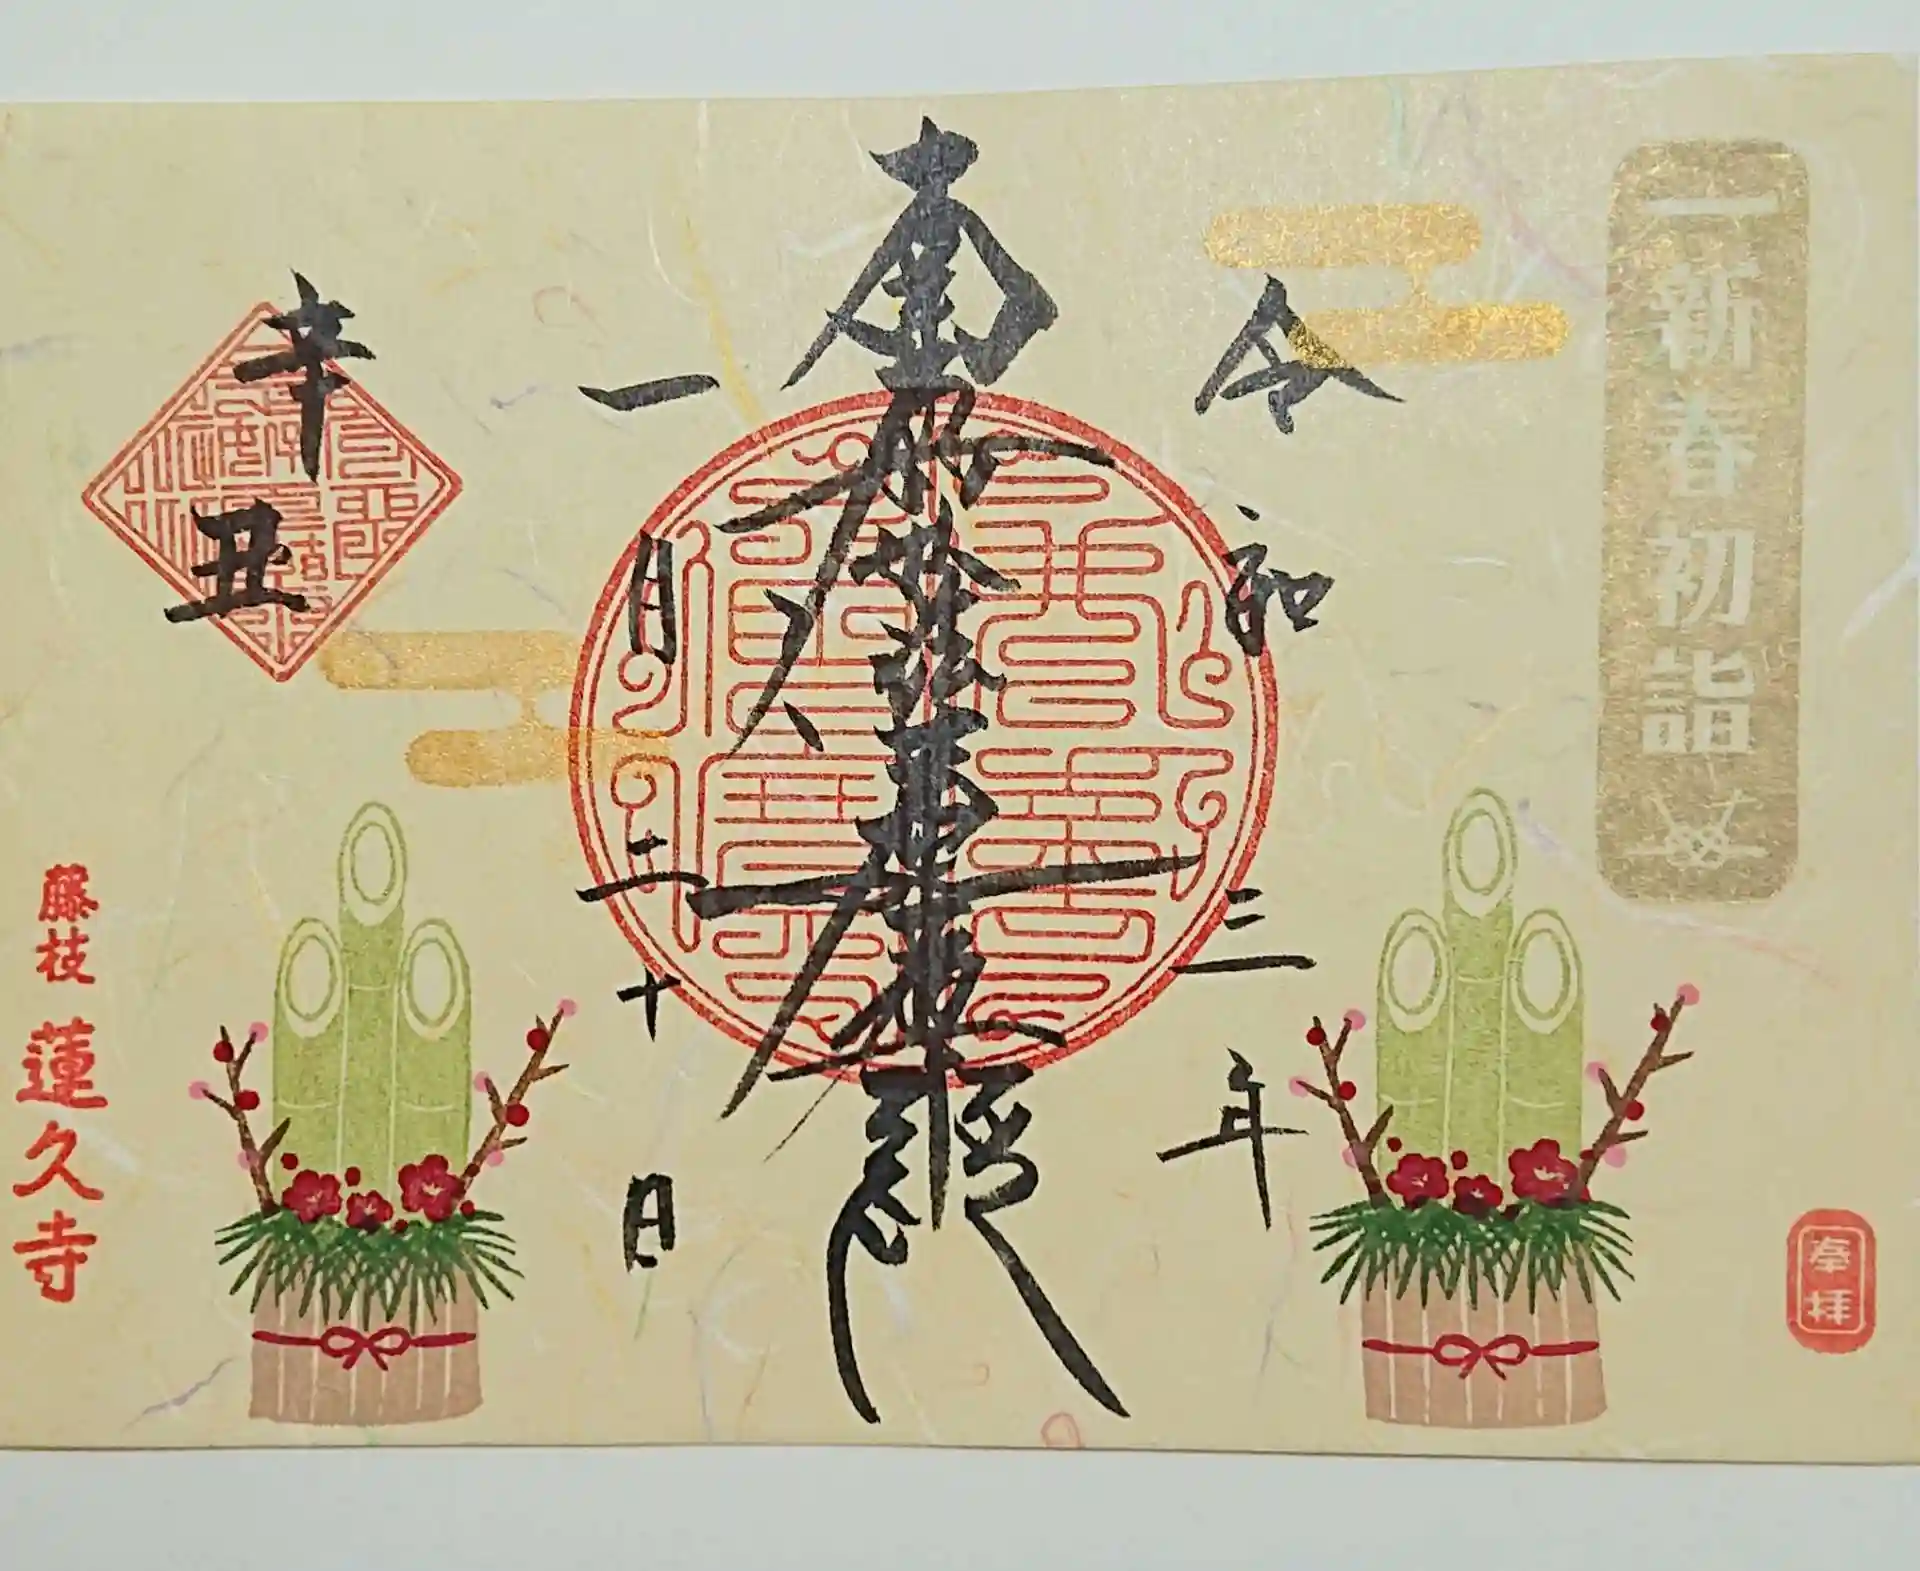 新春初詣
奉拝
令和三年
南無妙法蓮華経
一月二十日
辛丑
藤枝 蓮久寺